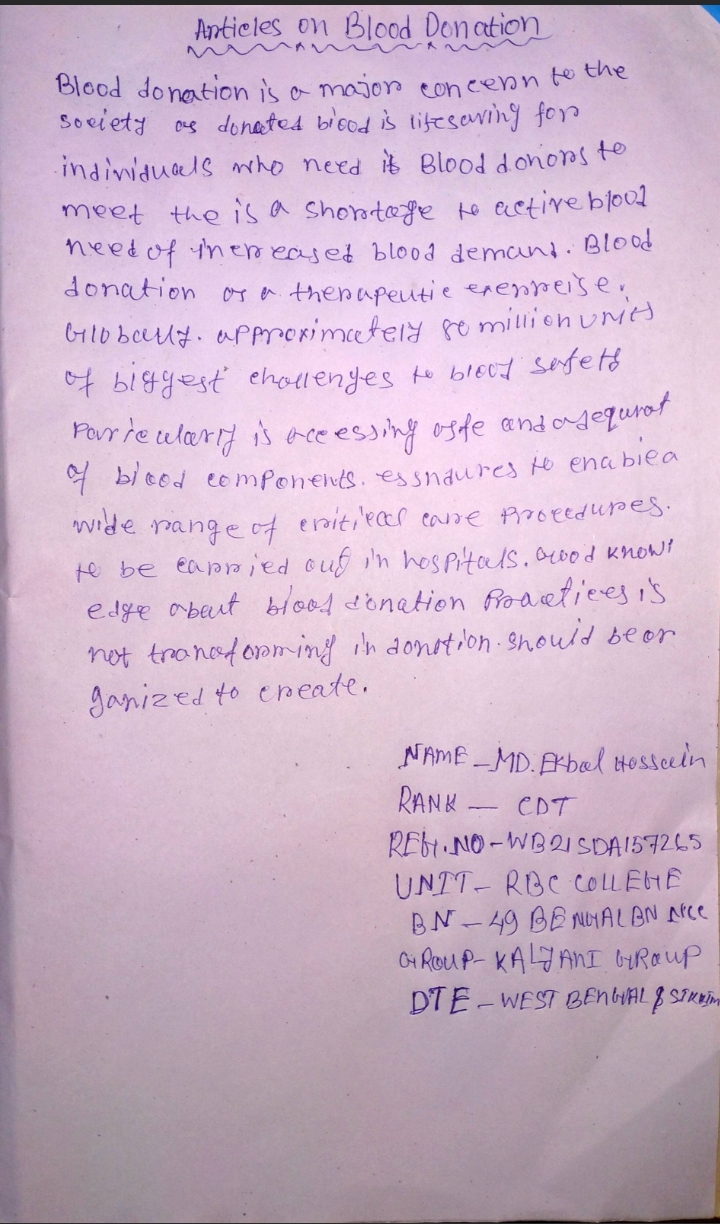 Articles on Blood Donation
Blood donation is a major concern to the
society as donated blood is lifesaving for
individuals who need it Blood donors to
meet the is a shortage to active blood
need of increased blood demand. Blood
donation as a therapeutic exercise.
Globally. approximately 80 million units
of biggest challenges to blood safety
particularly is accessing safe and adequat
of blood components. to enable a
wide range of critical care procedures.
to be carried out in hospitals. Good knowl
edge about blood donation Practices is
not transforming in donation. should be or
ganized to create.
NAME - MD. Ekbal Hossain
RANK - CDT
REG. NO - WB21SDA157265
UNIT - RBC COLLEGE
BN - 49 BENGAL BN NCC
GROUP - KALYANI GROUP
DTE - WEST BENGAL & SIKKIM